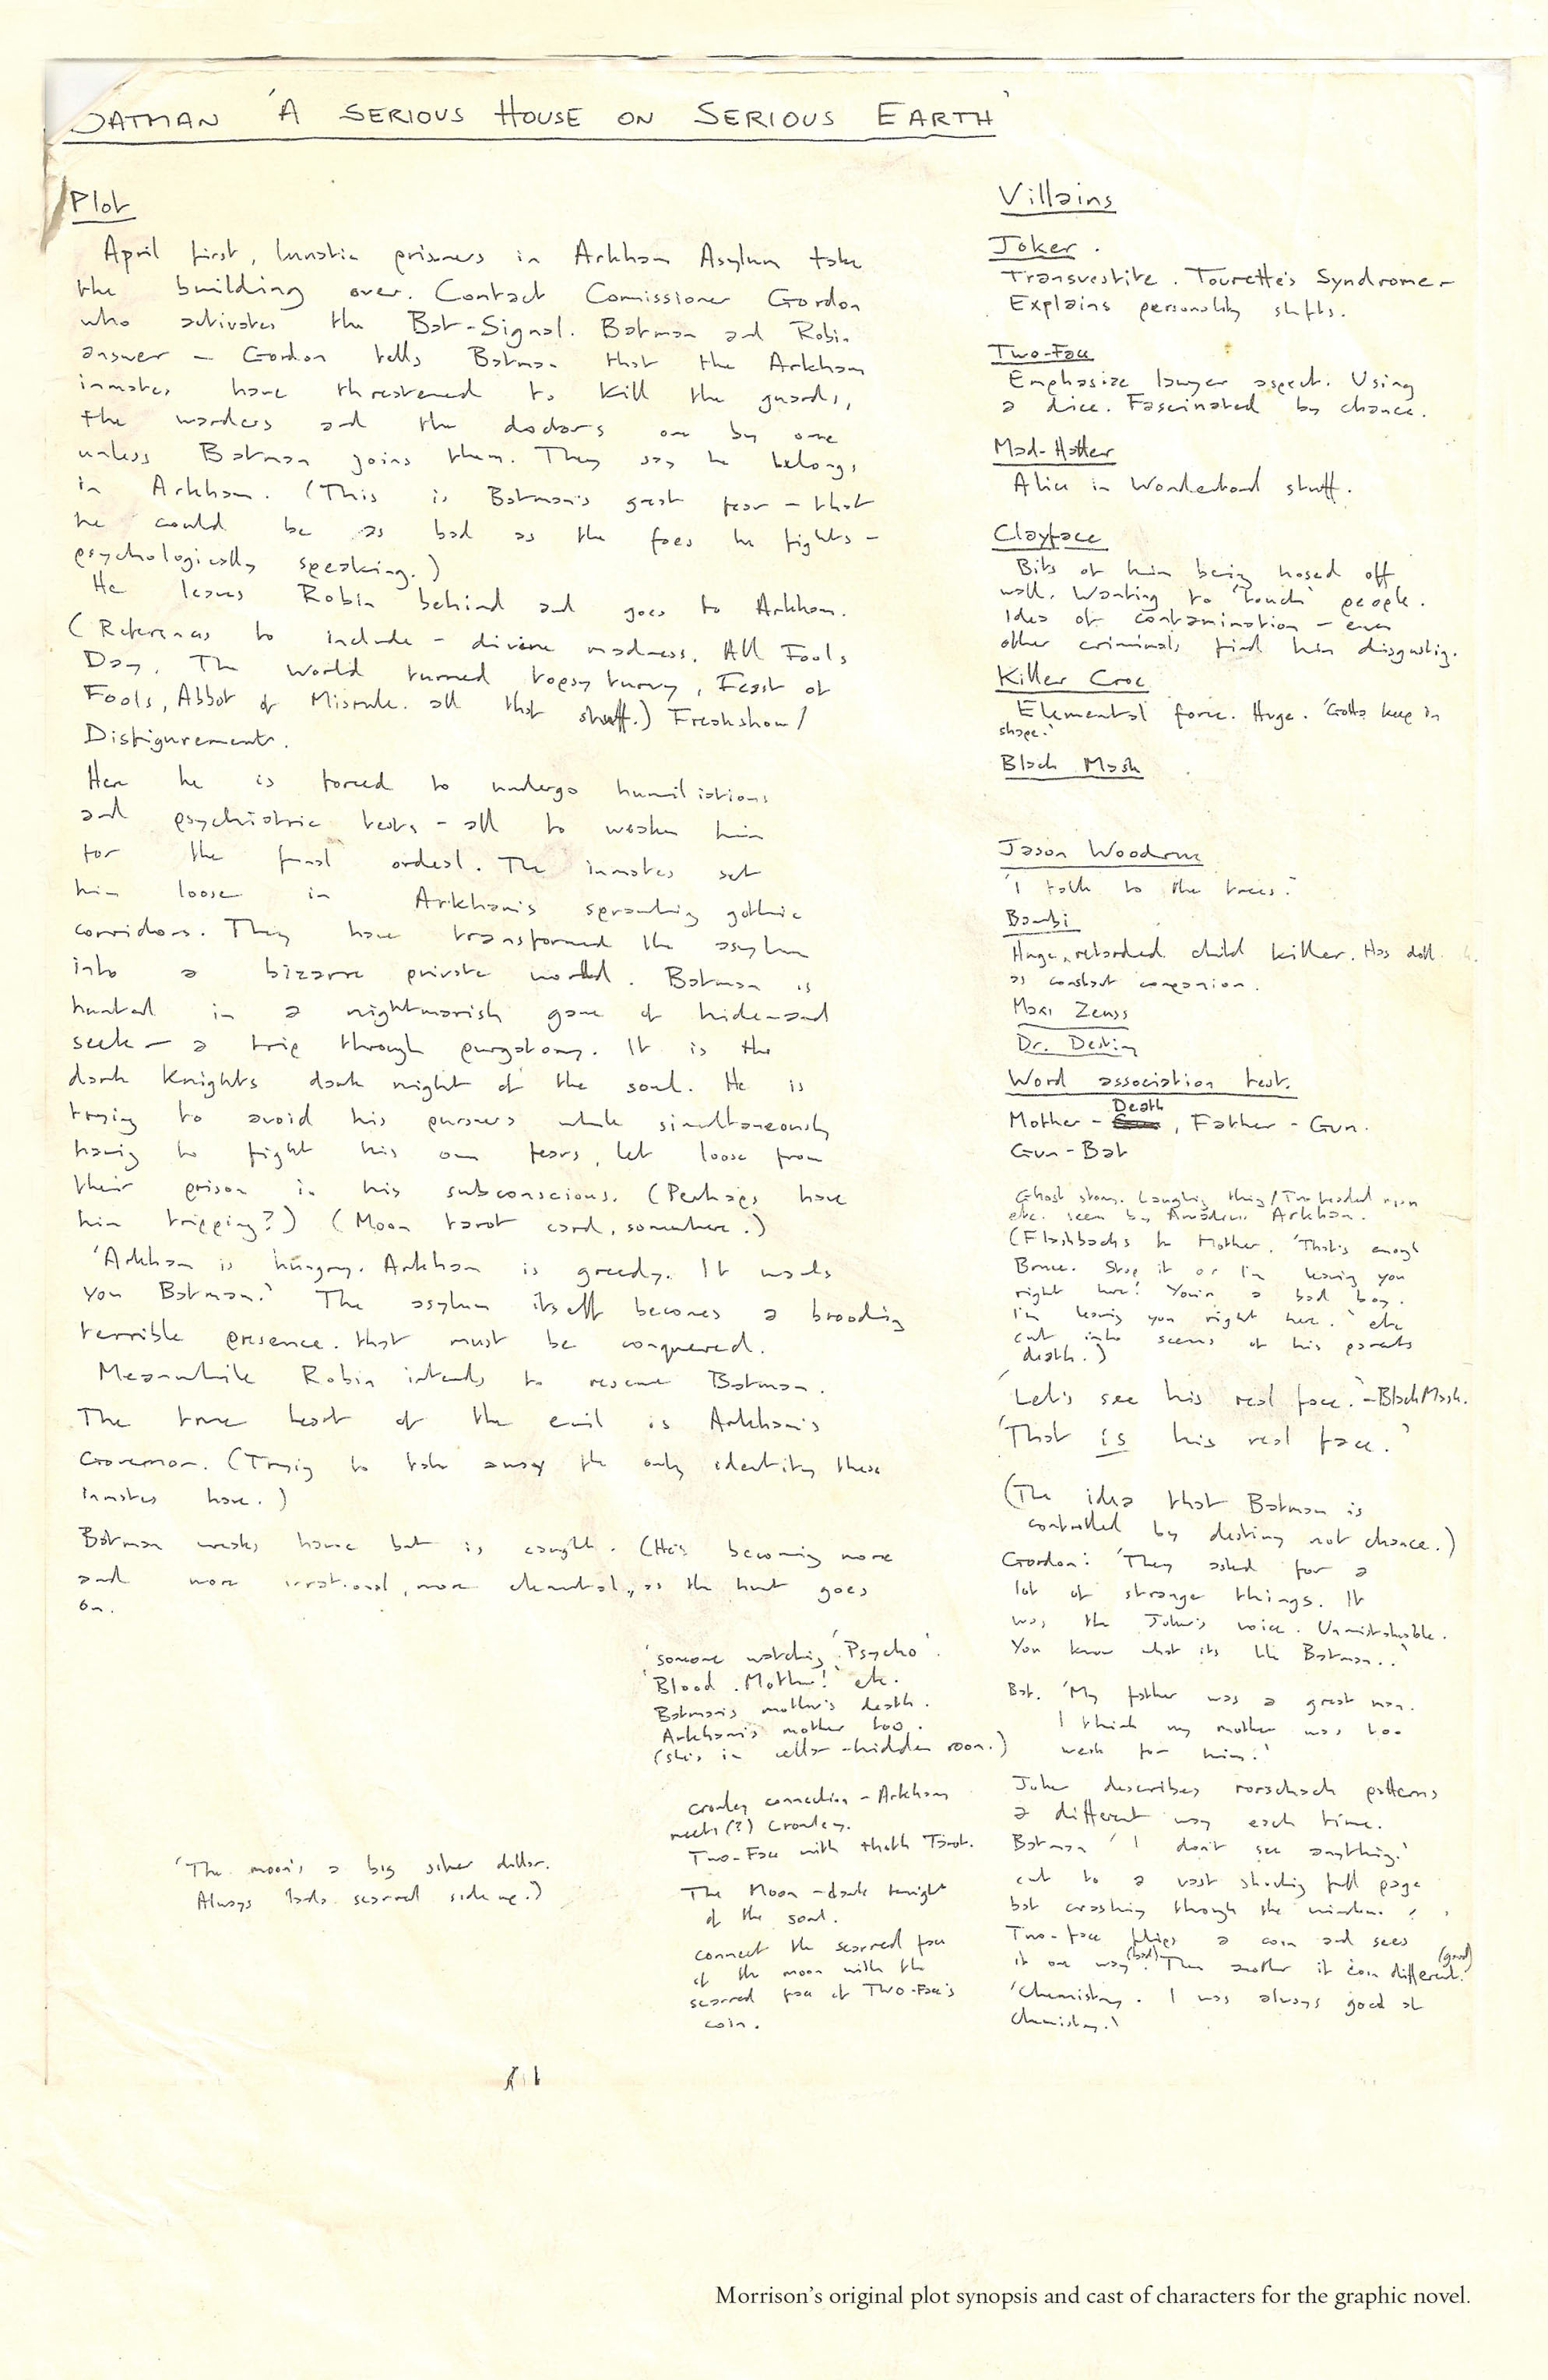 BATMAN 'A SERIOUS HOUSE ON SERIOUS EARTH'
Plot
April first, lunatic prisoners in Arkham Asylum take
the building over. Contact Comissioner Gordon
who activates the Bat-Signal. Batman and Robin
answer – Gordon tells Batman that the Arkham
inmates have threatened to kill the guards,
the warders and the doctors one by one
unless Batman joins them. They say he belongs
in Arkham. (This is Batman's great fear – that
he could be as bad as the foes he fights –
psychologically speaking.)
He leaves Robin behind and goes to Arkham.
(References to include – divine madness. All Fools
Day. The world turned topsy turvy, Feast of
Fools, Abbot of Misrule. all that stuff.) Freakshow/
Disfigurement.
Here he is forced to undergo humiliations
and psychiatric tests – all to weaken him
for the final ordeal. The inmates set
him loose in Arkham's sprawling gothic
corridors. They have transformed the asylum
into a bizarre private world. Batman is
hunted in a nightmarish game of hide-and
seek – a trip through purgatory. It is the
dark Knights dark night of the soul. He is
trying to avoid his pursuers while simultaneously
having to fight his own fears, let loose from
their prison in his subconscious. (Perhaps have
him tripping?) (Moon tarot card, somewhere.)
'Arkham is hungry. Arkham is greedy. It wants
you Batman.' The asylum itself becomes a brooding
terrible presence. that must be conquered.
Meanwhile Robin intends to rescue Batman.
The true heart of the evil is Arkham's
Governor. (Trying to take away the only identity these
inmates have.)
Batman wreaks havoc but is caught. (He's becoming more
and more irrational, more elemental, as the hunt goes
on.
'someone watching 'Psycho'.
'Blood. Mother!' etc.
Batman's mother's death.
Arkham's mother too.
(she's in cellar – hidden room.)
Crowley connection – Arkham
meets (?) Crowley.
Two-Face with thoth Tarot.
The Moon – dark tonight
of the soul.
connect the scarred face
of the moon with the
scarred face of Two-Face's
coin.
'The moon's a big silver dollar.
Always lands scarred side up.)
Villains
Joker.
Transvestite. Tourette's Syndrome –
Explains personality shifts.
Two-Face
Emphasize lawyer aspect. Using
a dice. Fascinated by chance.
Mad-Hatter
Alice in Wonderland stuff.
Clayface
Bits of him being hosed off
wall. Wanting to 'touch' people.
Idea of contamination – even
other criminals find him disgusting.
Killer Croc
Elemental force. Huge. 'Gotta keep in
shape.'
Black Mask
Jason Woodrue
'I talk to the trees.'
Bambi
Huge, retarded child killer. Has doll
as constant companion.
Maxi Zeuss
Dr. Destiny
Word association test.
Mother – Death, Father – Gun.
Gun – Bat
Ghost story. Laughing thing/Two headed man
etc. seen by Amadeus Arkham.
(Flashbacks to Mother. 'That's enough
Bruce. Stop it or I'm leaving you
right here! You're a bad boy.
I'm leaving you right here.' etc
cut into scenes of his parents
death.)
'Let's see his real face.' – Black Mask.
'That is his real face.'
(The idea that Batman is
controlled by destiny not chance.)
Gordon: 'They asked for a
lot of strange things. It
was the Joker's voice. Unmistakable.
You know what its like Batman..'
Bat. 'My father was a great man.
I think my mother was too
weak for him.'
Joker describes rorschach patterns
a different way each time.
Batman 'I don't see anything.'
cut to a vast shocking full page
bat crashing through the window.
Two-face flips a coin and sees
it one way (bad). Then another it (good) different.
'Chemistry. I was always good at
Chemistry.'
Morrison's original plot synopsis and cast of characters for the graphic novel.